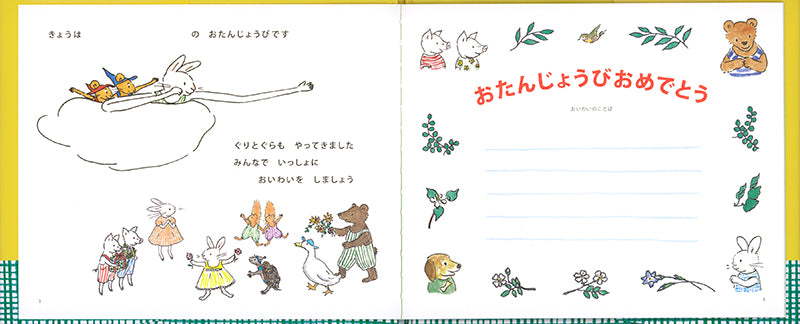 きょうは　　　　　　の　おたんじょうびです
ぐりとぐらも　やってきました
みんなで　いっしょに
おいわいを　しましょう
おたんじょうびおめでとう
おいわいのことば